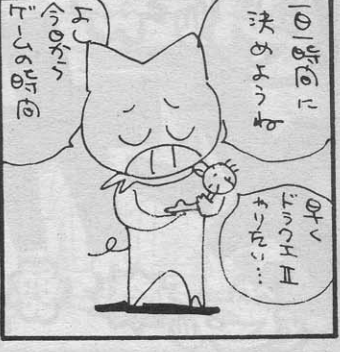 一日一時間に
決めようね
よし
今日から
ゲームの時間
早く
ドラクエⅡ
やりたい…